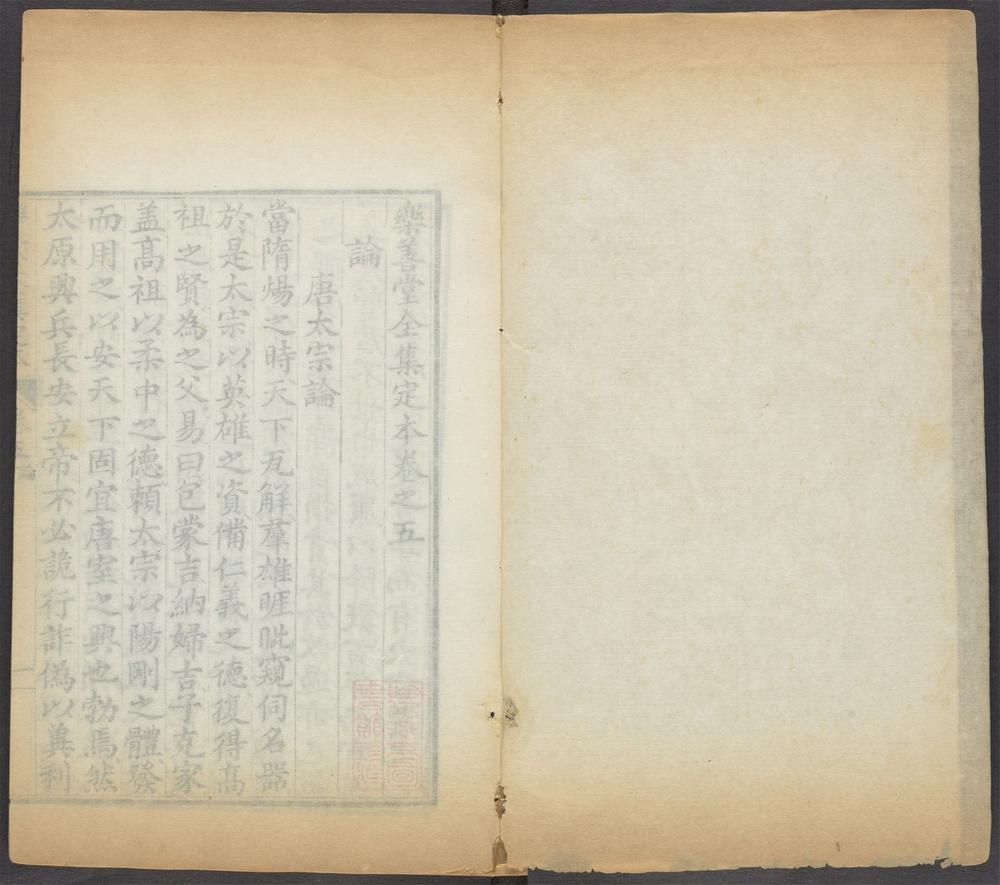 樂善堂全集定本卷之五
論
唐太宗論
當隋煬之時天下瓦解羣雄睚眦窺伺名器
於是太宗以英雄之資備仁義之德復得髙
祖之賢為之父易曰包蒙吉納婦吉子克家
盖髙祖以柔中之德頼太宗以陽剛之體發
而用之以安天下固宜唐室之興也勃焉然
太原興兵長安立帝不必詭行詐偽以兾利